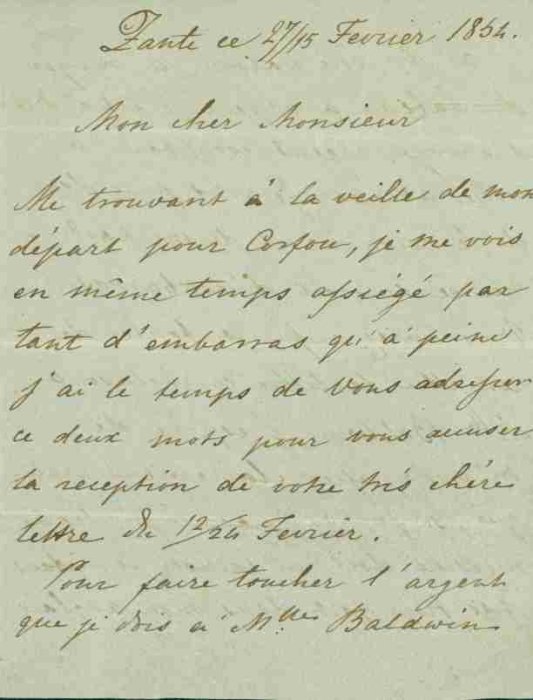 Zante ce 27/15 Fevrier 1854.
Mon cher Monsieur
Me trouvant à la veille de mon
départ pour Corfou, je me vois
en même temps assiégé par
tant d'embarras qu'à peine
j'ai le temps de vous adresser
ce deux mots pour vous accuser
la reception de votre très chére
lettre du 12/24 Fevrier.
Pour faire toucher l'argent
que je dois à Mlle Baldwin